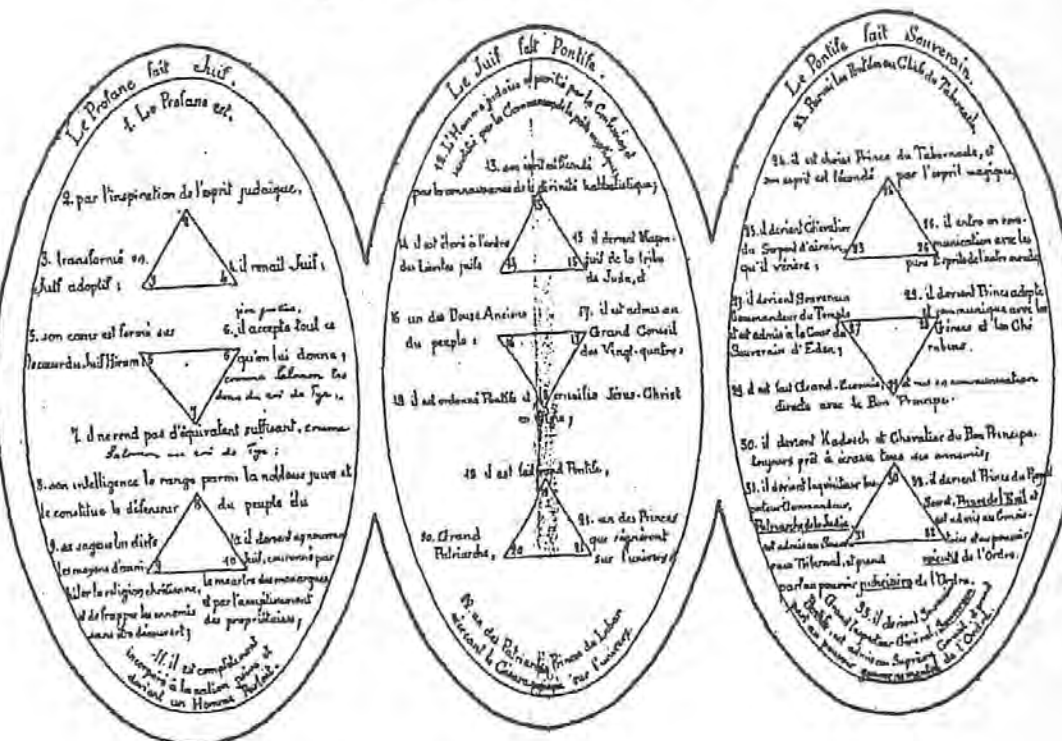 Le Profane fait Juif.
1. Le Profane est.
2. par l'inspiration de l'esprit judaïque,
2
3. transformé en
Juif adoptif ;
3
4
4. il renaît Juif ;
5. son cœur est formé sur
le cœur du Juif Hiram
5
6
6. il accepte tout ce
qu'on lui donne,
comme Salomon les
dons du roi de Tyr.
7
7. il ne rend pas d'équivalent suffisant, comme
Salomon au roi de Tyr ;
8. son intelligence le range parmi la noblesse juive et
le constitue le défenseur du peuple élu
8
9. sa
les moyens d'anni-
hiler la religion chrétienne,
et de frapper les ennemis
sans être découvert ;
9
10
10. il devient
Juif, couronné par
le meurtre des monarques,
et par l'
des propriétaires ;
11. il est complètement
incorporé à la nation juive, et
devient un Homme Parfait.
Le Juif fait Pontife.
12. L'Homme judaïsé et purifié par la
par la
13. son esprit est fécondé
par la connaissance de la divinité kabbalistique ;
13
14. il est élevé à l'ordre
des Lévites juifs
14
15
15. il devient Maçon-
juif de la tribu
de Juda, et
16. un des Douze Anciens
du peuple ;
16
17
17. il est admis au
Grand Conseil
des Vingt-quatre ;
18. il est ordonné Pontife et crucifie Jésus-Christ
18
19. il est fait Grand Pontife,
19
20. Grand
Patriarche,
20
21
21. un des Princes
qui règneront
sur l'univers
22. un des Patriarches Princes du Liban
exerçant le sur l'univers.
Le Pontife fait Souverain.
23. Parmi les Pontifes au Club du Tabernacle,
24. il est choisi Prince du Tabernacle, et
son esprit est fécondé par l'esprit magique,
24
25. il devient Chevalier
du Serpent d'airain,
qu'il vénère ;
26
26. il entre en com-
munication avec les
purs Esprits de l'autre monde
27. il devient Souverain
Commandeur du Temple
et est admis à la Cour du
Souverain d'Eden ;
27
28
28. il devient Prince adepte
et communique avec les
Génies et les Ché
rubins.
29. il est fait Grand-Ecossais et mis en communication
directe avec le Bon Principe.
30. il devient Kadosch et Chevalier du Bon Principe
toujours prêt à écraser tous ses ennemis ;
30
31. il devient Inquisiteur Ins-
pecteur Commandeur,
et est admis au Souve-
rain Tribunal, et prend
part au pouvoir judiciaire de l'Ordre.
31
32
32. il devient Prince du Royal
Secret, Prince de l'Exil et
est admis au Consis-
toire et au pouvoir
exécutif de l'Ordre.
33. il devient Souverain
Grand Inspecteur Général,
Pontife, est admis au Suprême Conseil, et prend
part au pouvoir gouvernemental de l'Ordre.